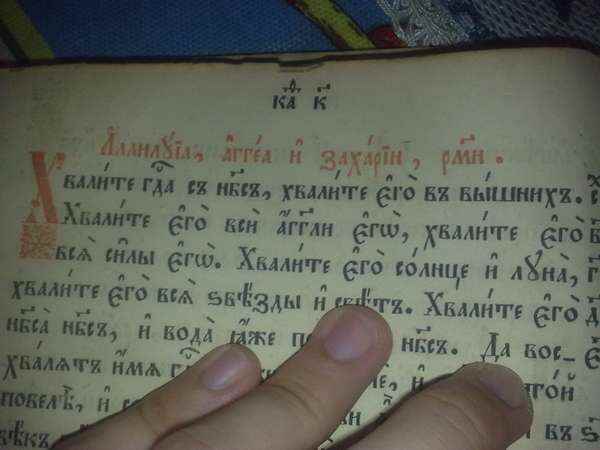 каѳ҃ к҃
А҆ллилꙋ́їа, а҆гге́а и҆ заха́рїи, рм҃и.
Хвали́те гдⷭ҇а съ нб҃съ, хвали́те є҆го̀ въ вы́шнихъ.
Хвали́те є҆го̀ всѝ а҆́гг҃ли є҆гѡ̀, хвали́те є҆го̀
всѧ̑ си̑лы є҆гѡ̀. Хвали́те є҆го̀ со́лнце и҆ лꙋна̀,
хвали́те є҆го̀ всѧ̑ ѕвѣ́зды и҆ свѣ́тъ. Хвали́те є҆го̀
нб҃са̀ нб҃съ, и҆ вода̀ ꙗ҆́же нб҃съ. Да вос-
хвалѧ́тъ и҆́мѧ и҆
повелѣ̀, и҆
вѣ́къ въ